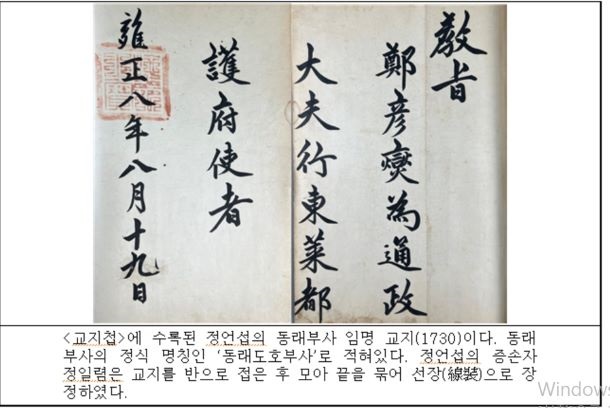 教旨
鄭彦燮為通政
大夫行東萊都
護府使者
雍正八年八月十九日
<교지첩>에 수록된 정언섭의 동래부사 임명 교지(1730)이다. 동래
부사의 정식 명칭인 ‘동래도호부사’로 적혀있다. 정언섭의 증손자
정일렴은 교지를 반으로 접은 후 모아 끝을 묶어 선장(線裝)으로 장
정하였다.
Windows